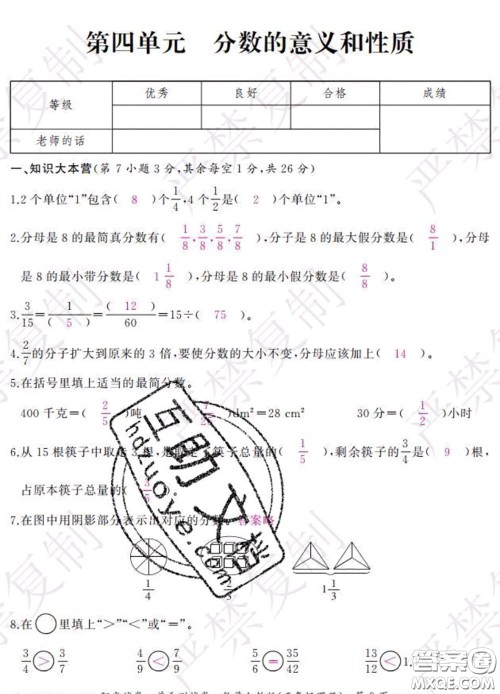 第四单元 分数的意义和性质
等级 优秀 良好 合格 成绩
老师的话
一、知识大本营(第7小题3分,其余每空1分,共26分)
1.2个单位“1”包含( 8 )个1/4,4个1/2是( 2 )个单位“1”。
2.分母是8的最简真分数有( 1/8,3/8,5/8,7/8 ),分子是8的最大假分数是( 8/1 ),分母
是8的最小带分数是( 1 1/8 ),分母是8的最小假分数是( 8/8 )。
3.3/15=1/( 5 )=( 12 )/60=15÷( 75 )。
4.2/7的分子扩大到原来的3倍,要使分数的大小不变,分母应该加上( 14 )。
5.在括号里填上适当的最简分数。
400千克=( 2/5 )吨 ( 7/25 )dm²=28 cm² 30分=( 1/2 )小时
6.从15根筷子中取 3根, 筷子总量的( 1/5 ),剩余筷子的3/4是( 9 )根,
占原本筷子总量的(
7.在图中用阴影部分表示出对应的分数。答案略
1/4 1 1/3
8.在○里填上“>”“<”或“=”。
3/4 > 3/7 4/9 < 7/9 5/6 = 15/18 13/12 < 1.
互助文库
hdzuoye.com
严禁复制
严禁复制
严禁复制
严禁复制
答案圈
MXQE.COM